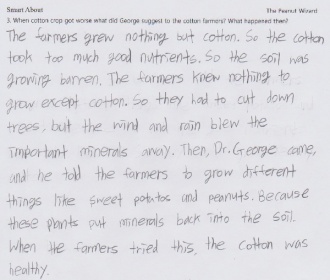 Smart About
The Peanut Wizard
3. When cotton crop got worse what did George suggest to the cotton farmers? What happened then?
The farmers grew nothing but cotton. So the cotton
took too much good nutrients. So the soil was
growing barren. The farmers knew nothing to
grow except cotton. So they had to cut down
trees, but the wind and rain blew the
important minerals away. Then, Dr. George came,
and he told the farmers to grow different
things like sweet potatos and peanuts. Because
these plants put minerals back into the soil.
When the farmers tried this, the cotton was
healthy.